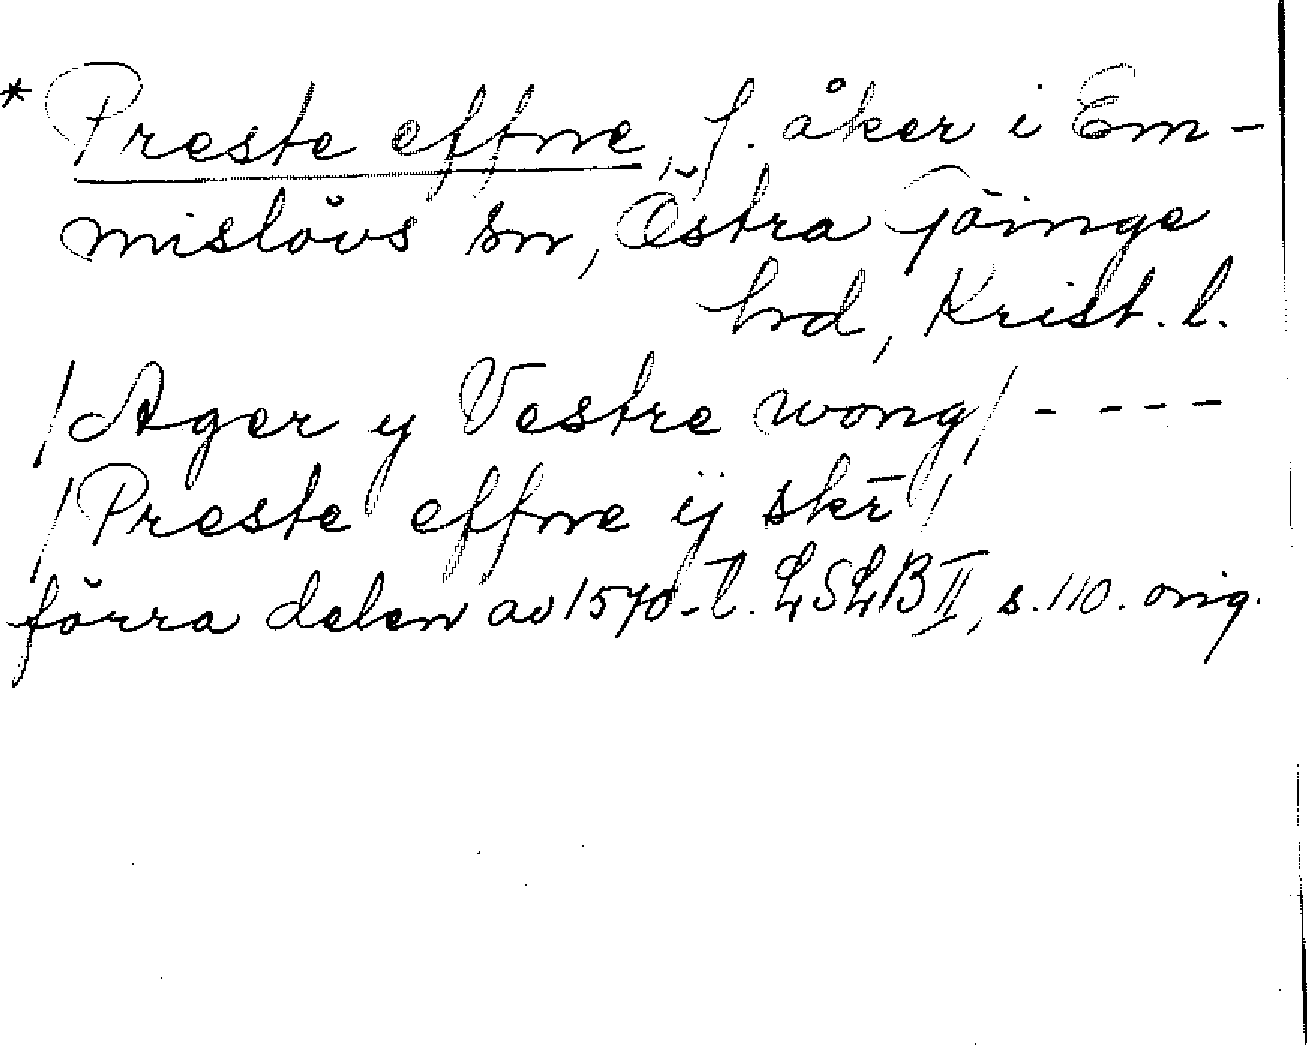 * Preste effne, f. åker i Em-
mislövs sn, Östra Göinge
hrd, Krist. l.
/Ager y Vestre wong/ - - - -
/Preste effne ij skr̄/
förra delen av 1570-t. LSLB II, s. 110. orig.